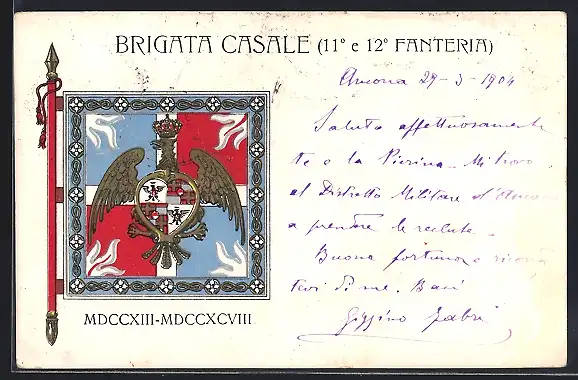 BRIGATA CASALE (11° e 12° FANTERIA)
Ancona 29-3-1904
Saluto affettuosamente
te e la Pierina. Mi trovo
al Distretto Militare d'Ancona
a prendere le reclute.
Buona fortuna e ricorda
tevi di me. Baci
MDCCXIII-MDCCXCVIII